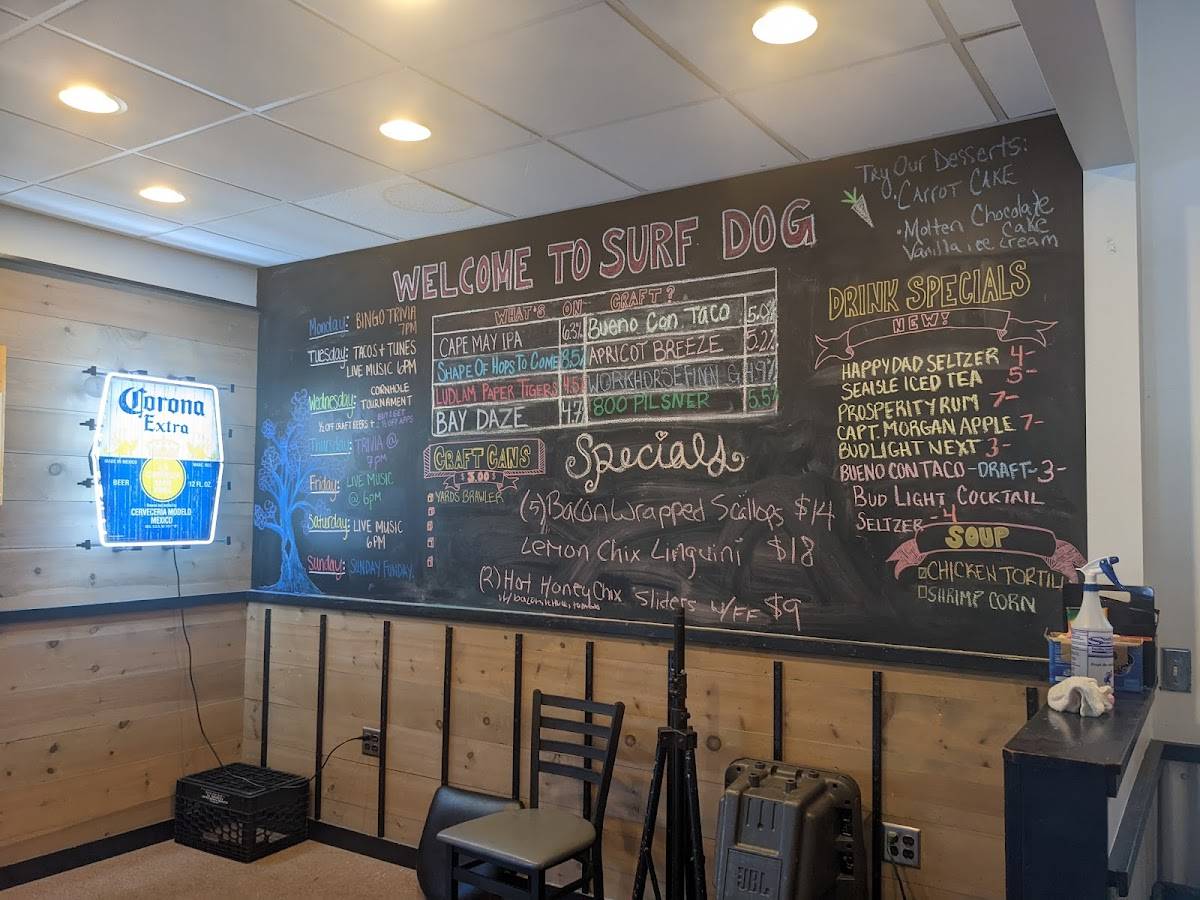 Try Our Desserts:
• CARROT CAKE
• Molten Chocolate
Cake
Vanilla ice cream
WELCOME TO SURF DOG
WHAT'S ON CRAFT?
CAPE MAY IPA 6.3% BUENO CON TACO 5.0%
SHAPE OF HOPS TO COME 8.5% APRICOT BREEZE 5.2%
LUDLAM PAPER TIGERS WORKHORSE 4.9%
BAY DAZE 4.7 800 PILSNER 5.5%
Monday: BINGO TRIVIA
7PM
TUESDAY: TACOS + TUNES
LIVE MUSIC 6PM
Wednesday: CORNHOLE
TOURNAMENT
½ OFF CRAFT BEERS + BUY 1 GET
½ OFF APPS
Thursday: TRIVIA @
7pm
Friday: LIVE MUSIC
@ 6pm
Saturday: LIVE MUSIC
6PM
Sunday: SUNDAY FUNDAY
CRAFT CANS
$3.00
YARDS BRAWLER
Specials
(5) Bacon Wrapped Scallops $14
Lemon Chix Linguini $18
(2) Hot Honey Chix Sliders w/FF $9
DRINK SPECIALS
NEW!
HAPPY DAD SELTZER 4-
SEA ISLE ICED TEA 5-
PROSPERITY RUM 7-
CAPT. MORGAN APPLE 7-
BUD LIGHT NEXT 3-
BUENO CON TACO -DRAFT- 3-
BUD LIGHT COCKTAIL
SELTZER - 4
SOUP
CHICKEN TORTIL
SHRIMP CORN
Corona
Extra
MADE IN MEXICO
BEER 12 FL. OZ.
CERVECERIA MODELO
MEXICO
JBL